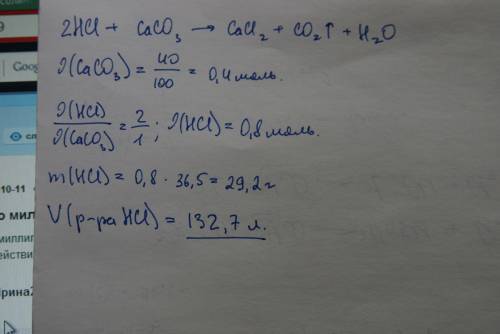 2HCl + CaCO₃ → CaCl₂ + CO₂↑ + H₂O
ν(CaCO₃) = 40/100 = 0,4 моль.
ν(HCl)/ν(CaCO₃) = 2/1; ν(HCl) = 0,8 моль.
m(HCl) = 0,8 · 36,5 = 29,2 г
V(р-ра HCl) = 132,7 л.
9
Goo
10-11
о мил
миллил
действи